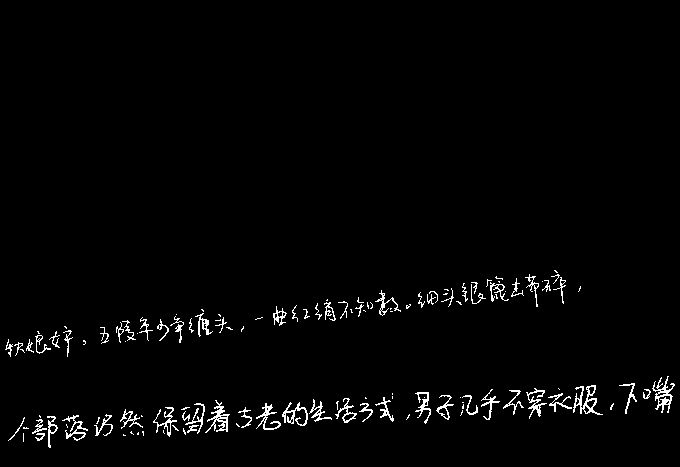 秋娘妒。五陵年少争缠头，一曲红绡不知数。钿头银篦击节碎，
个部落仍然保留着古老的生活方式，男子几乎不穿衣服，下嘴